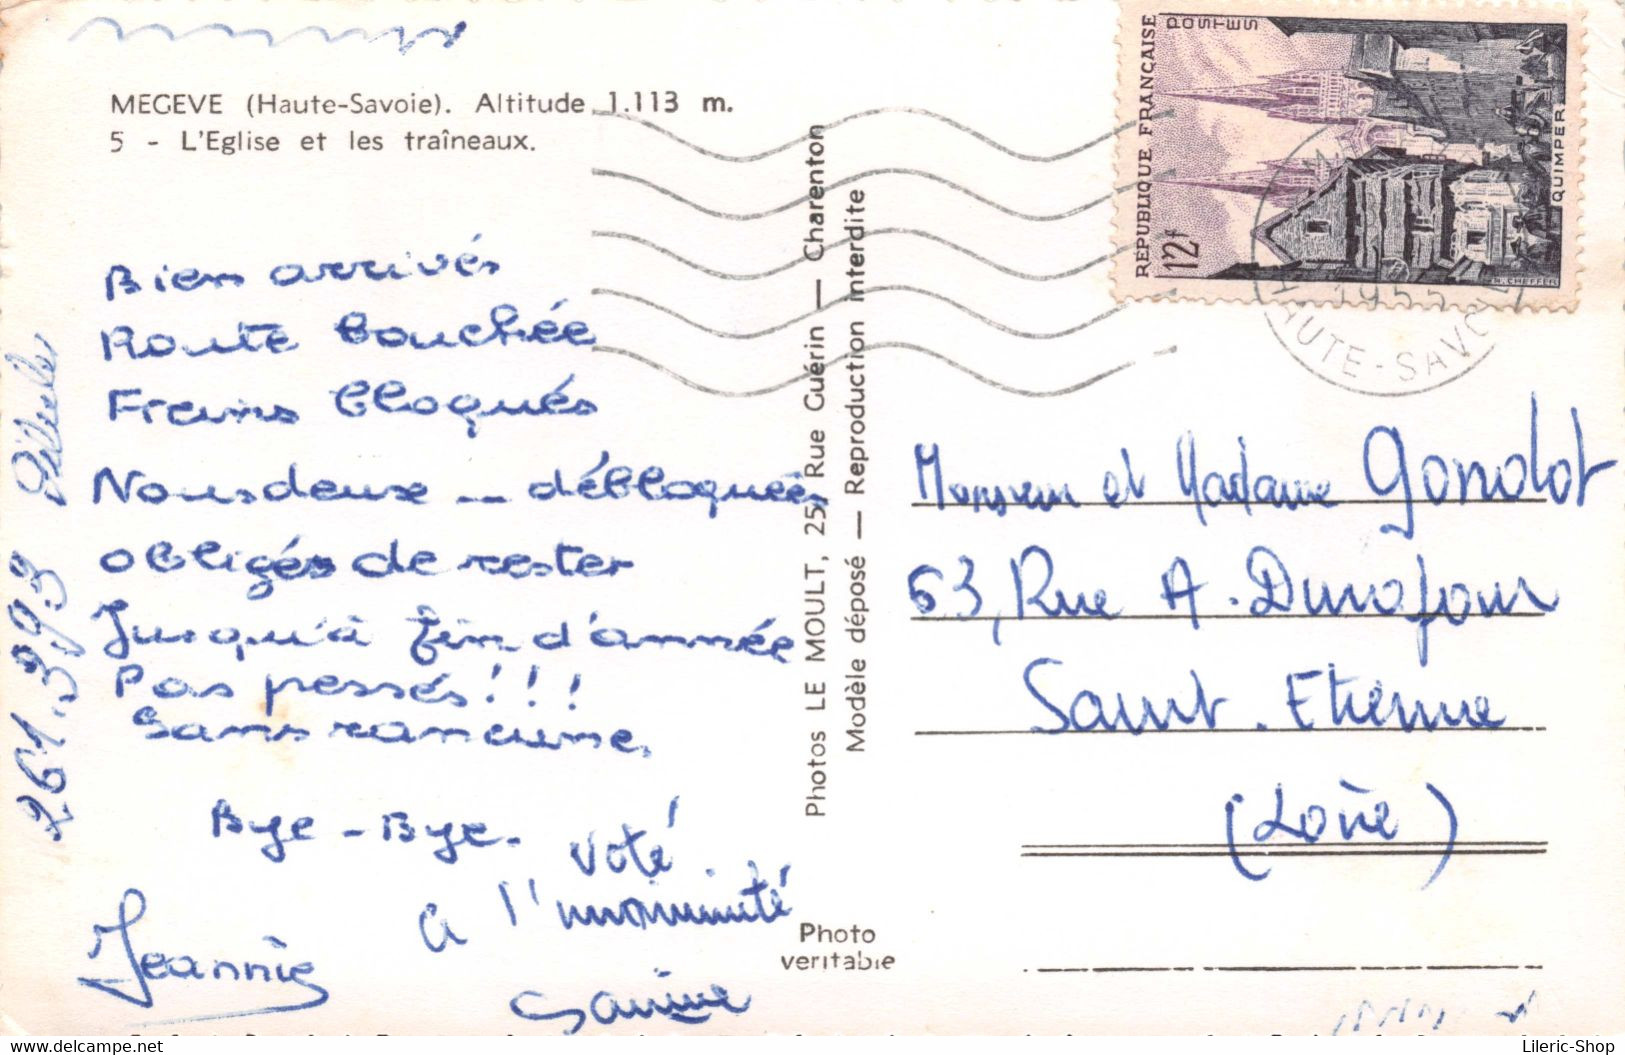 MEGEVE (Haute-Savoie). Altitude 1.113 m.
5 - L'Eglise et les traîneaux.
Bien arrivés
Route bouchée
Freins bloqués
Nous deux __ débloquées
obligés de rester
Jusqu'à fin d'année
Pas pessés!!!
Sans rancune.
Bye - Bye.
Voté
à l'unanimité
Jeannie
261.393
Photos LE MOULT, 25, Rue Guérin — Charenton
Modèle déposé — Reproduction interdite
Photo
veritable
REPUBLIQUE FRANÇAISE
POSTES
12f
QUIMPER
H. CHEFFER
1955
HAUTE-SAVOIE
Monsieur et Madame Gondot
63, Rue A. Durafour
Saint. Etienne
(Loire)
delcampe.net
Lileric-Shop